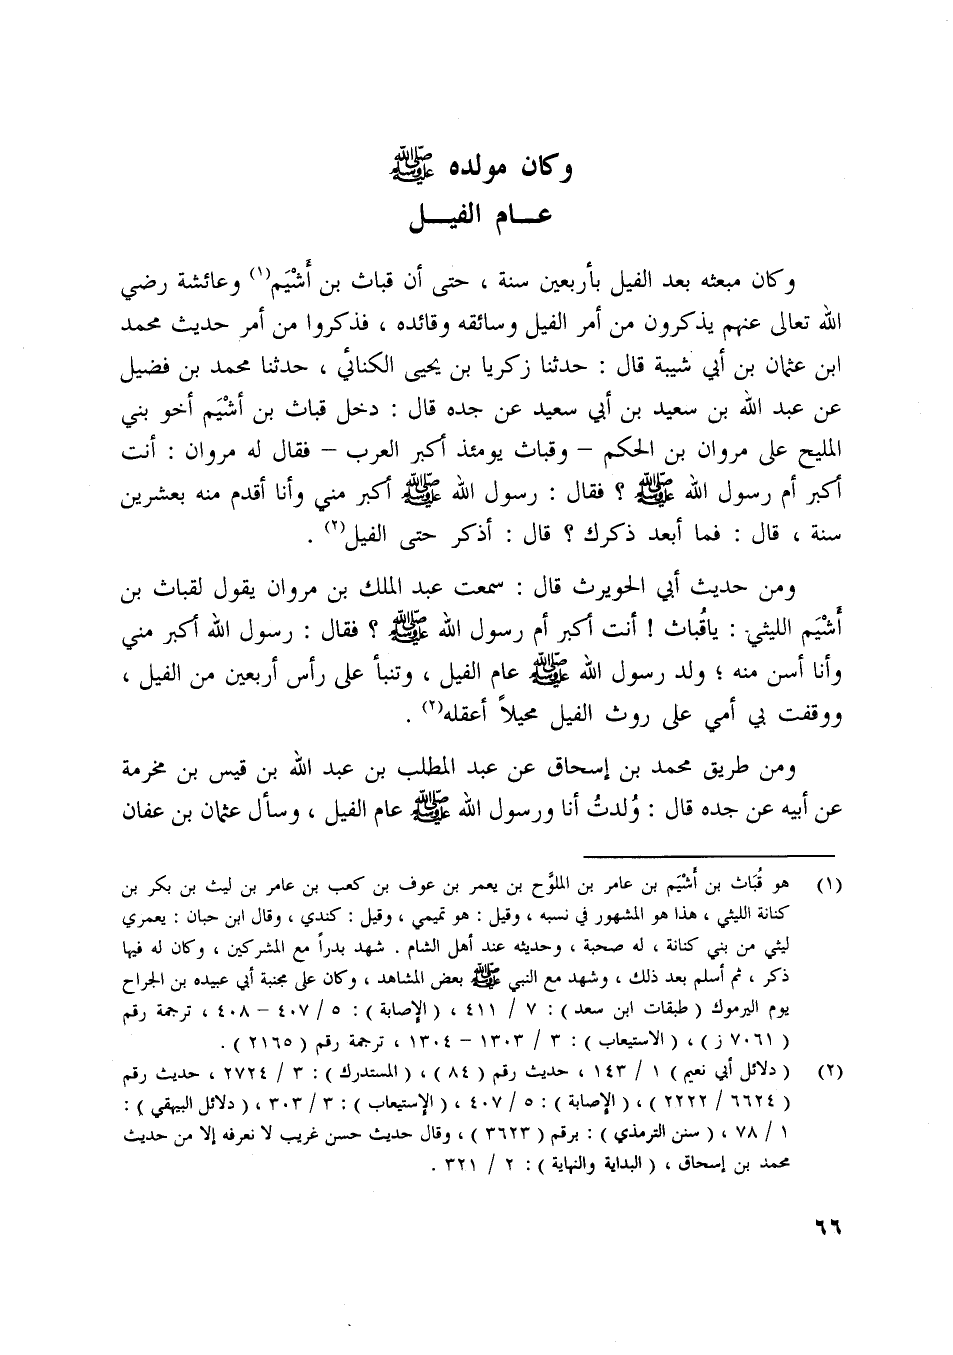 وكان مولده ﷺ
عـــام الفيـــل
وكان مبعثه بعد الفيل بأربعين سنة ، حتى أن قباث بن أَشْيَم(١) وعائشة رضي
الله تعالى عنهم يذكرون من أمر الفيل وسائقه وقائده ، فذكروا من أمر حديث محمد
ابن عثمان بن أبي شيبة قال : حدثنا زكريا بن يحيى الكنائي ، حدثنا محمد بن فضيل
عن عبد الله بن سعيد بن أبي سعيد عن جده قال : دخل قباث بن أشْيَم أخو بني
المليح على مروان بن الحكم – وقباث يومئذ أكبر العرب – فقال له مروان : أنت
أكبر أم رسول الله ﷺ ؟ فقال : رسول الله ﷺ أكبر مني وأنا أقدم منه بعشرين
سنة ، قال : فما أبعد ذكرك ؟ قال : أذكر حتى الفيل(٢) .
ومن حديث أبي الحويرث قال : سمعت عبد الملك بن مروان يقول لقباث بن
أَشْيَم الليثي : ياقُباث ! أنت أكبر أم رسول الله ﷺ ؟ فقال : رسول الله أكبر مني
وأنا أسن منه ؛ ولد رسول الله ﷺ عام الفيل ، وتنبأ على رأس أربعين من الفيل ،
ووقفت بي أمي على روث الفيل محيلاً أعقله(٢) .
ومن طريق محمد بن إسحاق عن عبد المطلب بن عبد الله بن قيس بن مخرمة
عن أبيه عن جده قال : وُلدتُ أنا ورسول الله ﷺ عام الفيل ، وسأل عثمان بن عفان
(١) هو قُبَاث بن أَشْيَم بن عامر بن الملوَّح بن يعمر بن عوف بن كعب بن عامر بن ليث بن بكر بن
كنانة الليثي ، هذا هو المشهور في نسبه ، وقيل : هو تميمي ، وقيل : كندي ، وقال ابن حبان : يعمري
ليثي من بني كنانة ، له صحبة ، وحديثه عند أهل الشام . شهد بدراً مع المشركين ، وكان له فيها
ذكر ، ثم أسلم بعد ذلك ، وشهد مع النبي ﷺ بعض المشاهد ، وكان على مجنبة أبي عبيده بن الجراح
يوم اليرموك ( طبقات ابن سعد ) : ٧ / ٤١١ ، ( الإصابة ) : ٥ / ٤٠٧ – ٤٠٨ ، ترجمة رقم
( ٧٠٦١ ز ) ، ( الاستيعاب ) : ٣ / ١٣٠٣ – ١٣٠٤ ، ترجمة رقم ( ٢١٦٥ ) .
(٢) ( دلائل أبي نعيم ) ١ / ١٤٣ ، حديث رقم ( ٨٤ ) ، ( المستدرك ) : ٣ / ٢٧٢٤ ، حديث رقم
( ٦٦٢٤ / ٢٢٢٢ ) ، ( الإصابة ) : ٥ / ٤٠٧ ، ( الإستيعاب ) : ٣ / ٣٠٣ ، ( دلائل البيهقي ) :
١ / ٧٨ ، ( سنن الترمذي ) : برقم ( ٣٦٢٣ ) ، وقال حديث حسن غريب لا نعرفه إلا من حديث
محمد بن إسحاق ، ( البداية والنهاية ) : ٢ / ٣٢١ .
٦٦